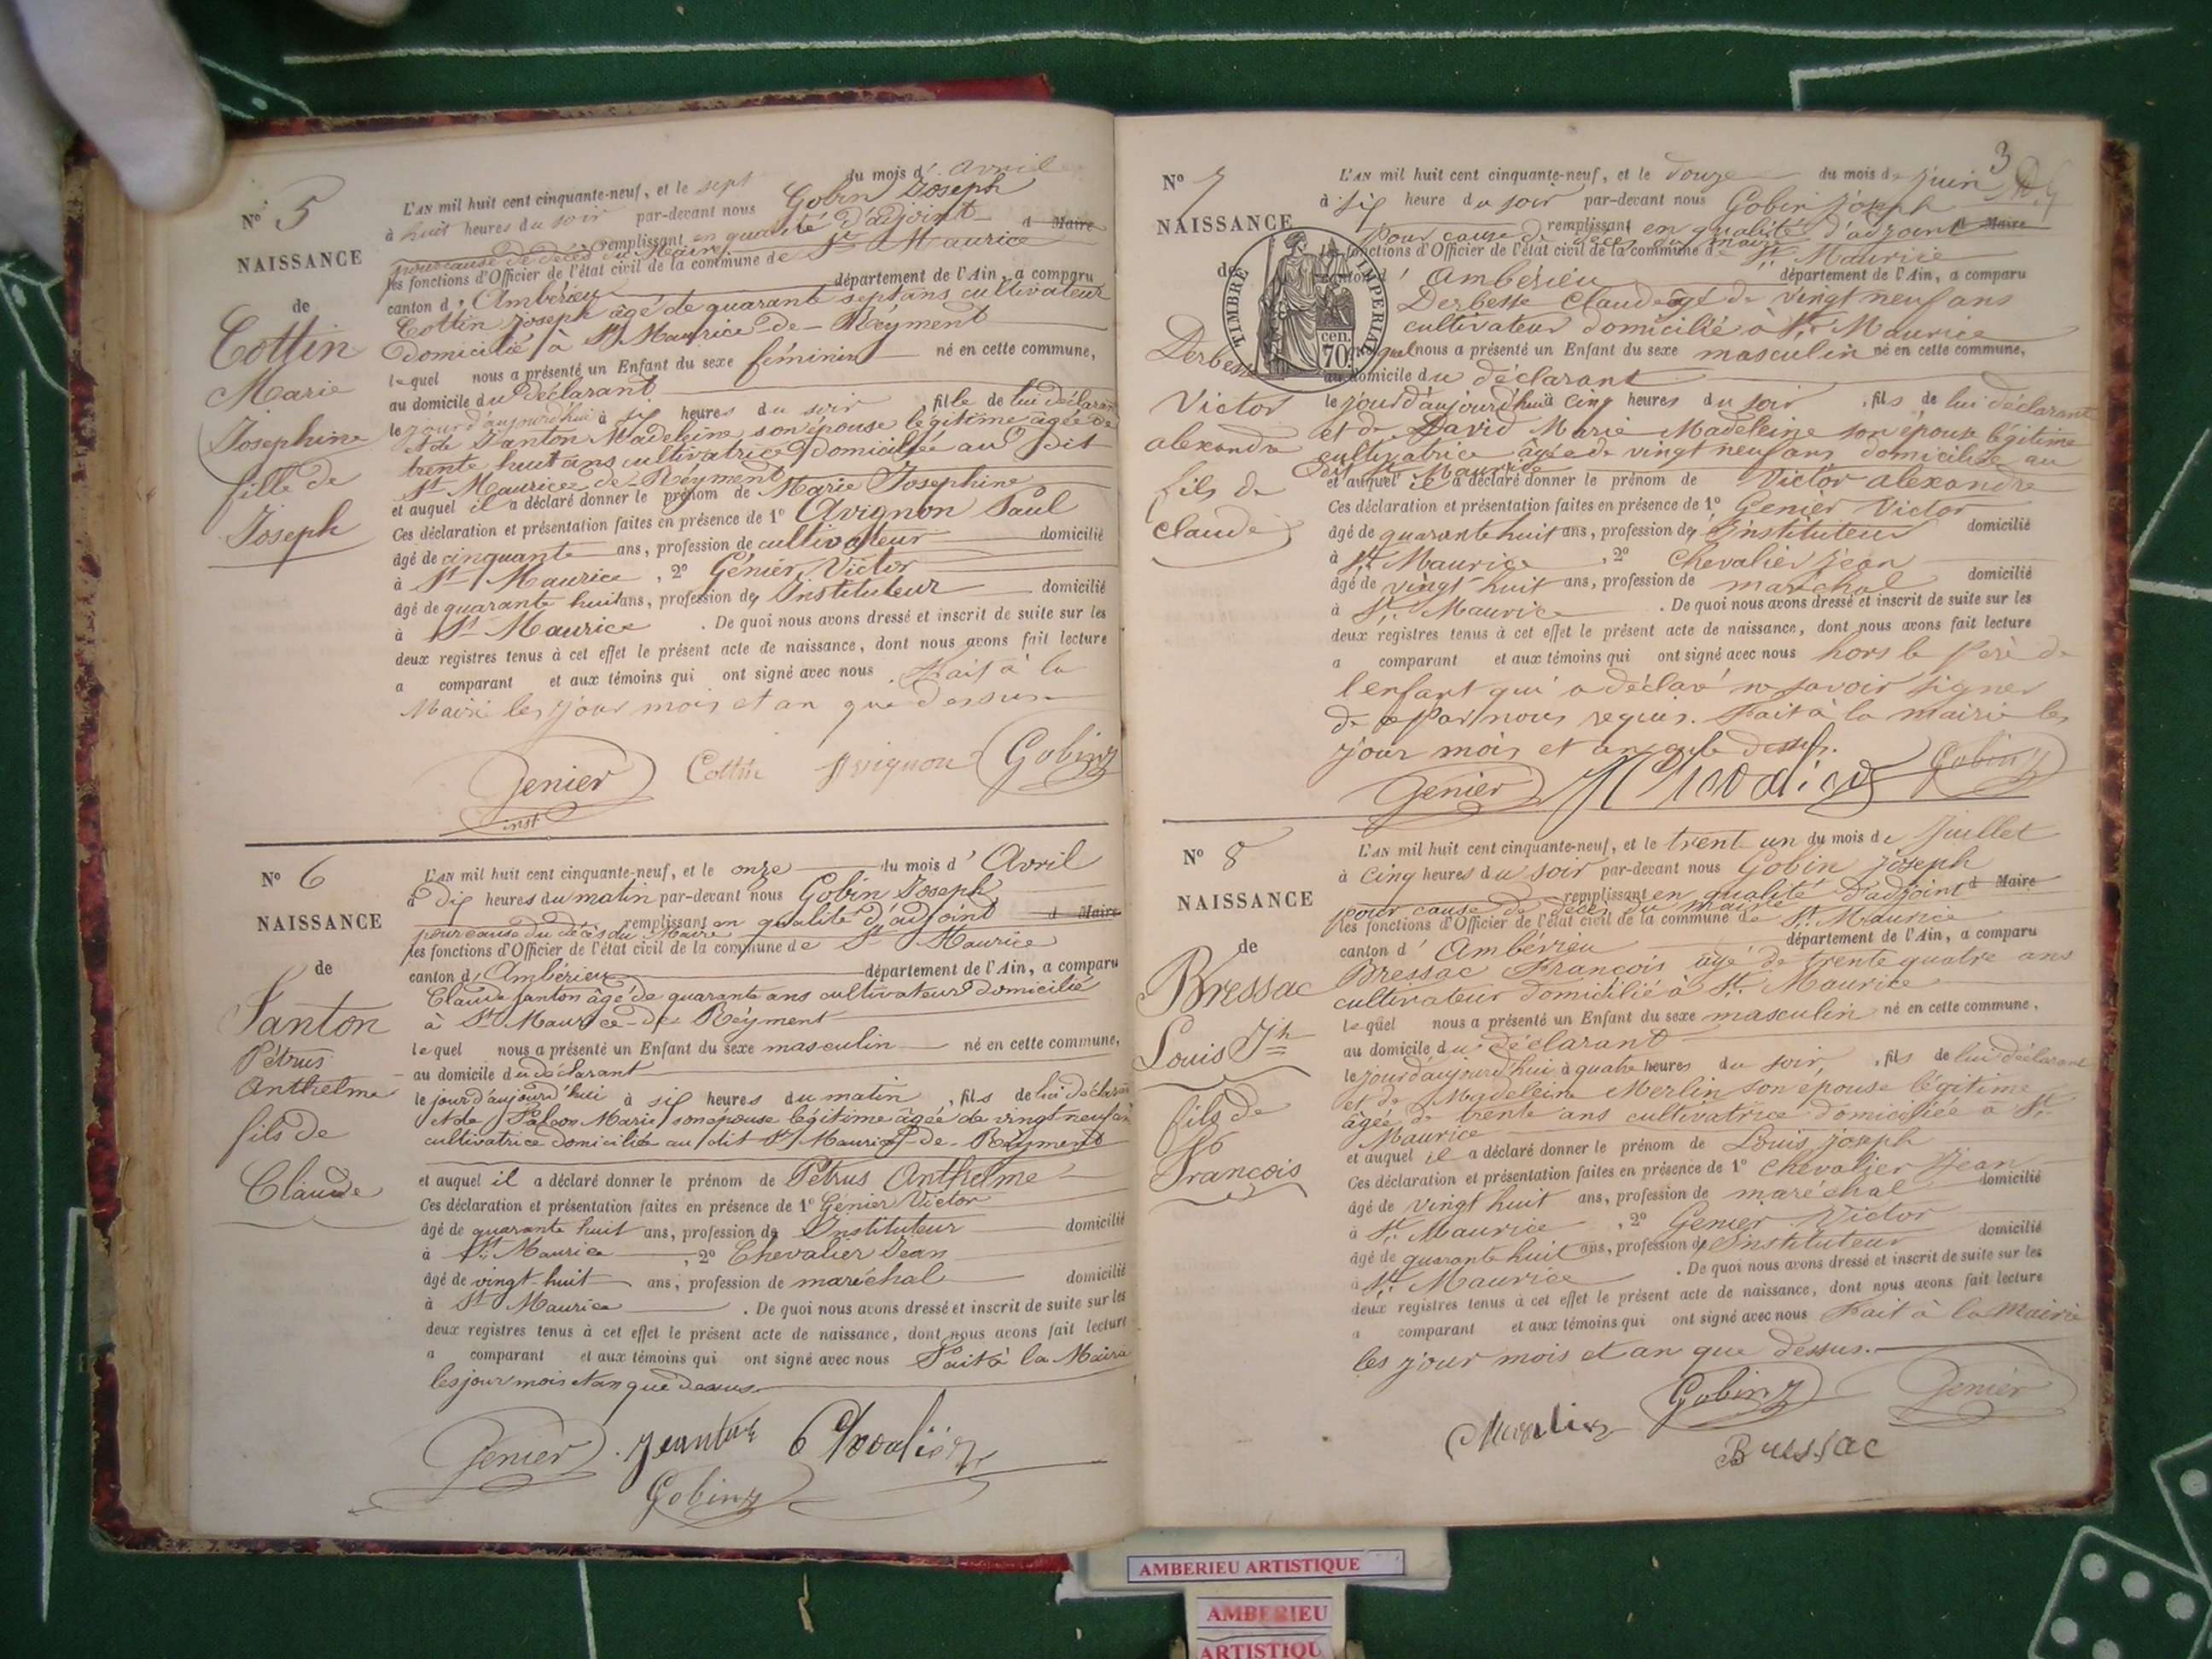 N° 5
NAISSANCE
de
Cottin
Marie
Josephine
fille de
Joseph
L'AN mil huit cent cinquante-neuf, et le sept du mois d' avril
à huit heures du soir par-devant nous Gobin Joseph
remplissant en qualité d'adjoint d Maire
pour cause de décès du Maire
les fonctions d'Officier de l'état civil de la commune de St Maurice
canton d' Ambérieu département de l'Ain, a comparu
Cottin Joseph âgé de quarante sept ans cultivateur
domicilié à St Maurice de-Réyment
lequel nous a présenté un Enfant du sexe féminin né en cette commune,
au domicile du déclarant
le jourd'aujourd'hui à six heures du soir, fille de lui déclarant
et de Janton Madeleine son épouse légitime âgée de
trente huit ans cultivatrice domiciliée au dit
St Maurice-de-Réyment
et auquel il a déclaré donner le prénom de Marie Josephine
Ces déclaration et présentation faites en présence de 1° Avignon Paul
âgé de cinquante ans, profession de cultivateur domicilié
à St Maurice, 2° Génier Victor
âgé de quarante huit ans, profession de Instituteur domicilié
à St Maurice . De quoi nous avons dressé et inscrit de suite sur les
deux registres tenus à cet effet le présent acte de naissance, dont nous avons fait lecture
a comparant et aux témoins qui ont signé avec nous . Fait à la
Mairie les jour mois et an que dessus
Genier Cottin Avignon Gobin J
inst
N° 6
NAISSANCE
de
Janton
Pétrus
Anthelme
fils de
Claude
L'AN mil huit cent cinquante-neuf, et le onze du mois d' Avril
à dix heures du matin par-devant nous Gobin Joseph
remplissant en qualité d'adjoint d Maire
pour cause du décès du Maire
les fonctions d'Officier de l'état civil de la commune de St Maurice
canton d' Ambérieu département de l'Ain, a comparu
Claude Janton âgé de quarante ans cultivateur domicilié
à St Maurice-de-Réyment
lequel nous a présenté un Enfant du sexe masculin né en cette commune,
au domicile du déclarant
le jour d'aujourd'hui à six heures du matin, fils de lui déclarant
et de Marie son épouse légitime âgée de vingt neuf ans
cultivatrice domiciliée au dit St Maurice-de-Réyment
et auquel il a déclaré donner le prénom de Pétrus Anthelme
Ces déclaration et présentation faites en présence de 1° Génier Victor
âgé de quarante huit ans, profession de Instituteur domicilié
à St Maurice, 2° Chevalier Jean
âgé de vingt-huit ans, profession de maréchal domicilié
à St Maurice . De quoi nous avons dressé et inscrit de suite sur les
deux registres tenus à cet effet le présent acte de naissance, dont nous avons fait lecture
a comparant et aux témoins qui ont signé avec nous Fait à la Mairie
les jour mois et an que dessus
Genier Chevalier
Gobin J
3
N° 7
NAISSANCE
de
TIMBRE IMPERIAL
70 cen.
Derbesse
Victor
alexandre
fils de
Claude
L'AN mil huit cent cinquante-neuf, et le douze du mois de juin
à six heure du soir par-devant nous Gobin joseph
remplissant en qualité d'adjoint d Maire
pour cause de décès du maire
fonctions d'Officier de l'état civil de la commune de St. Maurice
canton d' Ambérieu département de l'Ain, a comparu
Derbesse Claude âgé de vingt neuf ans
cultivateur domicilié à St. Maurice
quel nous a présenté un Enfant du sexe masculin né en cette commune,
au domicile du déclarant
le jour d'aujourd'hui à cinq heures du soir, fils de lui déclarant
et de David Marie Madeleine son épouse légitime
cultivatrice âgée de vingt neuf ans domiciliée au
dit St Maurice
et auquel il a déclaré donner le prénom de Victor alexandre
Ces déclaration et présentation faites en présence de 1° Genier Victor
âgé de quarante huit ans, profession de Instituteur domicilié
à St. Maurice, 2° Chevalier jean
âgé de vingt huit ans, profession de maréchal domicilié
à St. Maurice . De quoi nous avons dressé et inscrit de suite sur les
deux registres tenus à cet effet le présent acte de naissance, dont nous avons fait lecture
a comparant et aux témoins qui ont signé avec nous hors le père de
l'enfant qui a déclaré ne savoir signer
de par nous requis. Fait à la mairie les
jour mois et an que dessus.
Genier Gobin J
N° 8
NAISSANCE
de
Bressac
Louis Jh
fils de
François
L'AN mil huit cent cinquante-neuf, et le trent un du mois de juillet
à cinq heures du soir par-devant nous Gobin joseph
remplissant en qualité d'adjoint d Maire
pour cause de décès du maire
les fonctions d'Officier de l'état civil de la commune de St. Maurice
canton d' Ambérieu département de l'Ain, a comparu
Bressac François âgé de trente quatre ans
cultivateur domicilié à St. Maurice
lequel nous a présenté un Enfant du sexe masculin né en cette commune,
au domicile du déclarant
le jour d'aujourd'hui à quatre heures du soir, fils de lui déclarant
et de Madeleine Merlin son épouse légitime
âgée de trente ans cultivatrice domiciliée à St.
Maurice
et auquel il a déclaré donner le prénom de Louis joseph
Ces déclaration et présentation faites en présence de 1° Chevalier Jean
âgé de vingt huit ans, profession de maréchal domicilié
à St. Maurice, 2° Genier Victor
âgé de quarante huit ans, profession de Instituteur domicilié
à St. Maurice . De quoi nous avons dressé et inscrit de suite sur les
deux registres tenus à cet effet le présent acte de naissance, dont nous avons fait lecture
a comparant et aux témoins qui ont signé avec nous Fait à la Mairie
les jour mois et an que dessus.
Gobin J Genier
Bressac
AMBERIEU ARTISTIQUE
AMBERIEU
ARTISTIQU